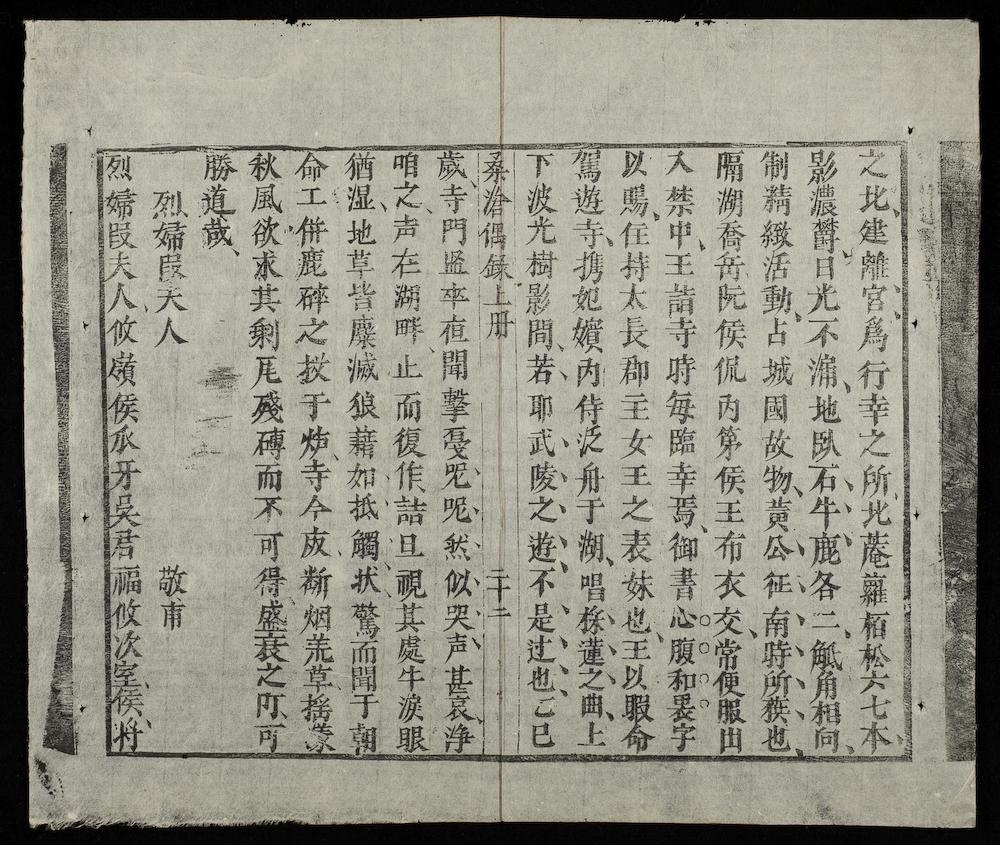 之北建離宮爲行幸之所北菴蘿栢松六七本
影濃欝日光不漏地臥石牛鹿各二觝角相向
制精緻活動占城國故物黃公征南時所獲也
隔湖喬岳阮侯侃内第侯王布衣交常便服出
入禁中王詣寺時每臨幸焉御書心腹和㕥字
以賜住持太長郡主女王之表妹也王以暇命
駕遊寺携妃嬪内侍泛舟于湖唱採蓮之曲上
下波光樹影間若耶武陵之遊不是过也乙巳
桑滄偶錄上册 二十二
歲寺門監卒夜聞擊戞呢呢然似哭声甚哀淨
咱之声在湖畔止而復作詰旦視其處牛淚眼
猶湿地草皆糜滅狼藉如抵觸状驚而聞于朝
命工併鹿碎之投于炉寺今废断烟荒草搖落
秋風欲求其剩瓦殘磚而不可得盛衰之际可
勝道哉
烈婦段夫人 敬甫
烈婦段夫人攸嶺侯丞牙吳君福攸次室侯將